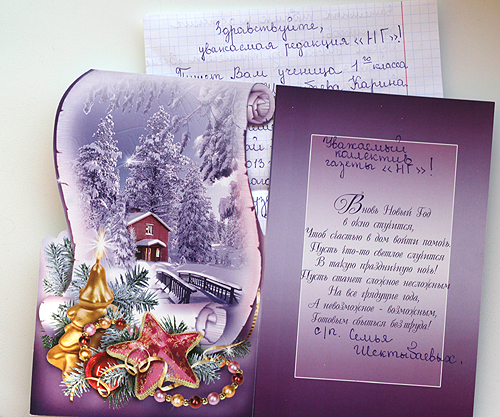 Здравствуйте,
уважаемая редакция «НГ»!
Пишет Вам ученица 1 го класса
Карина
Уважаемый
коллектив
газеты «НГ»!
Вновь Новый Год
в окно стучится,
Чтоб счастью в дом войти помочь.
Пусть что-то светлое случится
В такую праздничную ночь!
Пусть станет сложное несложным
На все грядущие года,
А невозможное - возможным,
Готовым сбыться без труда!
с/п. Семья
Шектыбаевых.